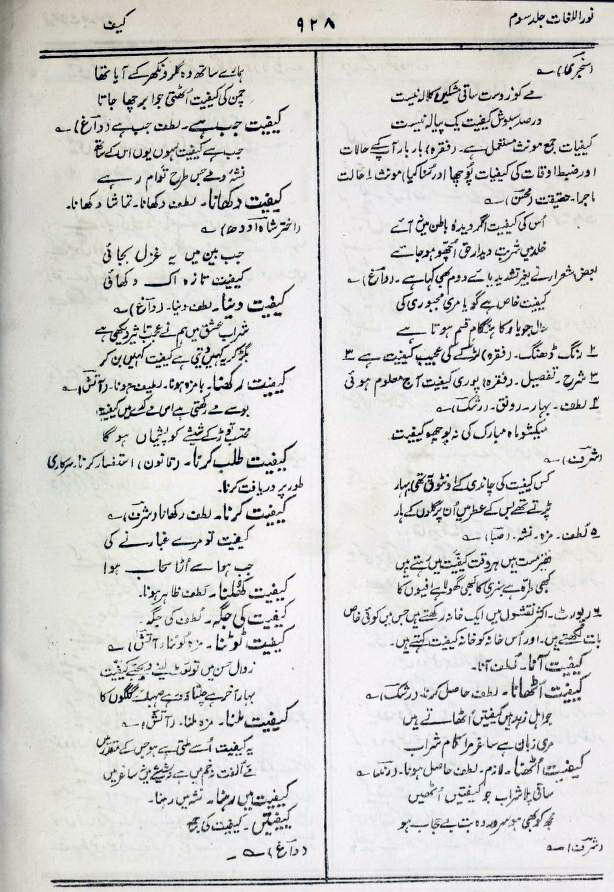 نور اللغات جلد سوم
۹۲۸
کیف
(سنجر کا) ؎
مے کو ز دست ساقی مشکیں کلالہ نیست
در صد سبوش کیفیت یک پیالہ نیست
کیفیات جمع مونث مستعمل ہے۔ (فقرہ) بار بار آپ کے حالات
اور ضبط اوقات کی کیفیات پوچھا اور سُنا کیا) مونث ۱ حالت
ماجرا۔ حقیقت (محسن) ؎
اُس کی کیفیت اگر دیدۂ باطن میں آئے
خلد میں شربت دیدار حق اچھو ہو جائے
بعض شعرا نے بغیر تشدید یائے دوم بھی کہا ہے۔ (داغ) ؎
کیفیت خاص ہے گویا مری مجبوری کی
حال جو باد کا ہنگام قسم ہوتا ہے
۲ رنگ ڈھنگ۔ (فقرہ) لڑکے کی عجیب کیفیت ہے ۳
۳ شرح۔ تفصیل۔ (فقرہ) پوری کیفیت آج معلوم ہوئی
۴ لطف۔ بہار۔ رونق۔ (رشک) ؎
میکشو ماہ مبارک کی نہ پوچھو کیفیت
(شرف) ؎
کس کیفیت کی چاندی کے طوق تھی بہار
پڑتے تھے بس کے عطر میں اُن پر گلوں کے ہار
۵ لطف۔ مزہ۔ نشہ۔ (صبا) ؎
نظر مست ہیں ہر وقت کیفیت میں رہتے ہیں
کبھی طرّہ ہے سبزی کا کبھی گھولا ہے افیوں کا
۶ رپورٹ۔ اکثر نقشوں میں ایک خانہ رکھتے ہیں جس میں کوئی خاص
بات لکھتے ہیں۔ اور اُس خانہ کو خانہ کیفیت کہتے ہیں۔
کیفیت آنا۔ لُطف آنا۔
کیفیت اُٹھانا۔ لطف حاصل کرنا۔ (رشک) ؎
جو اہل زہد ہیں کیفیتیں اُٹھاتے ہیں
مری زبان ہے ساغر مرا کلام شراب
کیفیت اُٹھنا۔ لازم۔ لطف حاصل ہونا۔ (رشک) ؎
ساقی پلا شراب جو کیفیتیں اُٹھیں
مجھ کو بھی ہو سرور وہ بت بے حجاب ہو
(شرف) ؎
ہمارے ساتھ وہ گلرو نکھر کے آیا تھا
چمن کی کیفیت اُٹھتی جو ابر چھا جاتا
کیفیت جب ہے۔ لطف جب ہے (داغ) ؎
جب ہے کیفیت ہوں یوں اس کے ساتھ
نشہ و مے جس طرح توام رہے
کیفیت دکھانا۔ لطف دکھانا۔ تماشا دکھانا۔
(اختر شاہ اودھ) ؎
جب بین میں یہ غزل بجائی
کیفیت تازہ اک دکھائی
کیفیت دینا۔ لطف دینا۔ (داغ) ؎
شراب عشق میں ہم نے عجب تاثیر دیکھی ہے
بگڑ کر یہ کہیں دیتی ہے کیفیت کہیں بن کر
کیفیت رکھنا۔ بامزہ ہونا۔ لطیف ہونا۔ (آتش) ؎
بوسے مے رکھتی ہے اس مے کدے میں کیفیت
محتسب توڑ کے شیشے کو پشیماں ہو گا
کیفیت طلب کرنا۔ (قانون) استفسار کرنا۔ سرکاری
طور پر دریافت کرنا۔
کیفیت کرنا۔ لطف رکھانا (شرف) ؎
کیفیت تو مرے غبارے نے کی
جب ہوا سے اُڑا سحاب ہوا
کیفیت کھُلنا۔ لُطف ظاہر ہونا۔
کیفیت کی جگہ۔ لُطف کی جگہ۔
کیفیت لوٹنا۔ مزہ لوٹنا۔ (آتش) ؎
زوال حسن میں تو لوٹ لینے دیجئے کیفیت
بہار آخر ہے چلتا دور ہے صہبائے گلگوں کا
کیفیت ملنا۔ مزہ ملنا۔ (آتش) ؎
یہ کیفیت اُسے ملتی ہے ہو جس کے مقدر میں
مئے اُلفت نہ خم میں ہے نہ شیشے میں نہ ساغر میں
کیفیت میں رہنا۔ نشہ میں رہنا۔
کیفیتیں۔ کیفیت کی جمع
(داغ) ؎